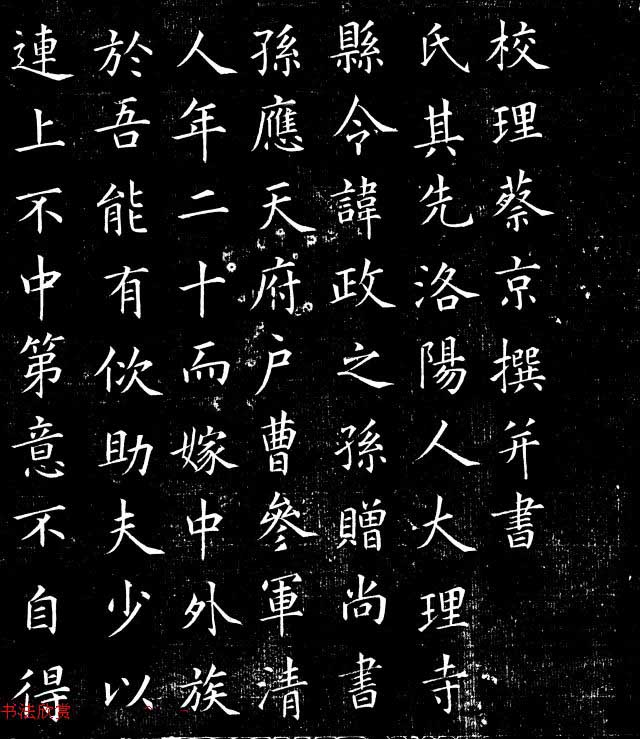 校理蔡京撰并書
氏其先洛陽人大理寺
縣令諱政之孫贈尚書
孫應天府户曹參軍清
人年二十而嫁中外族
於吾能有佽助夫少以
連上不中第意不自得
书法欣赏